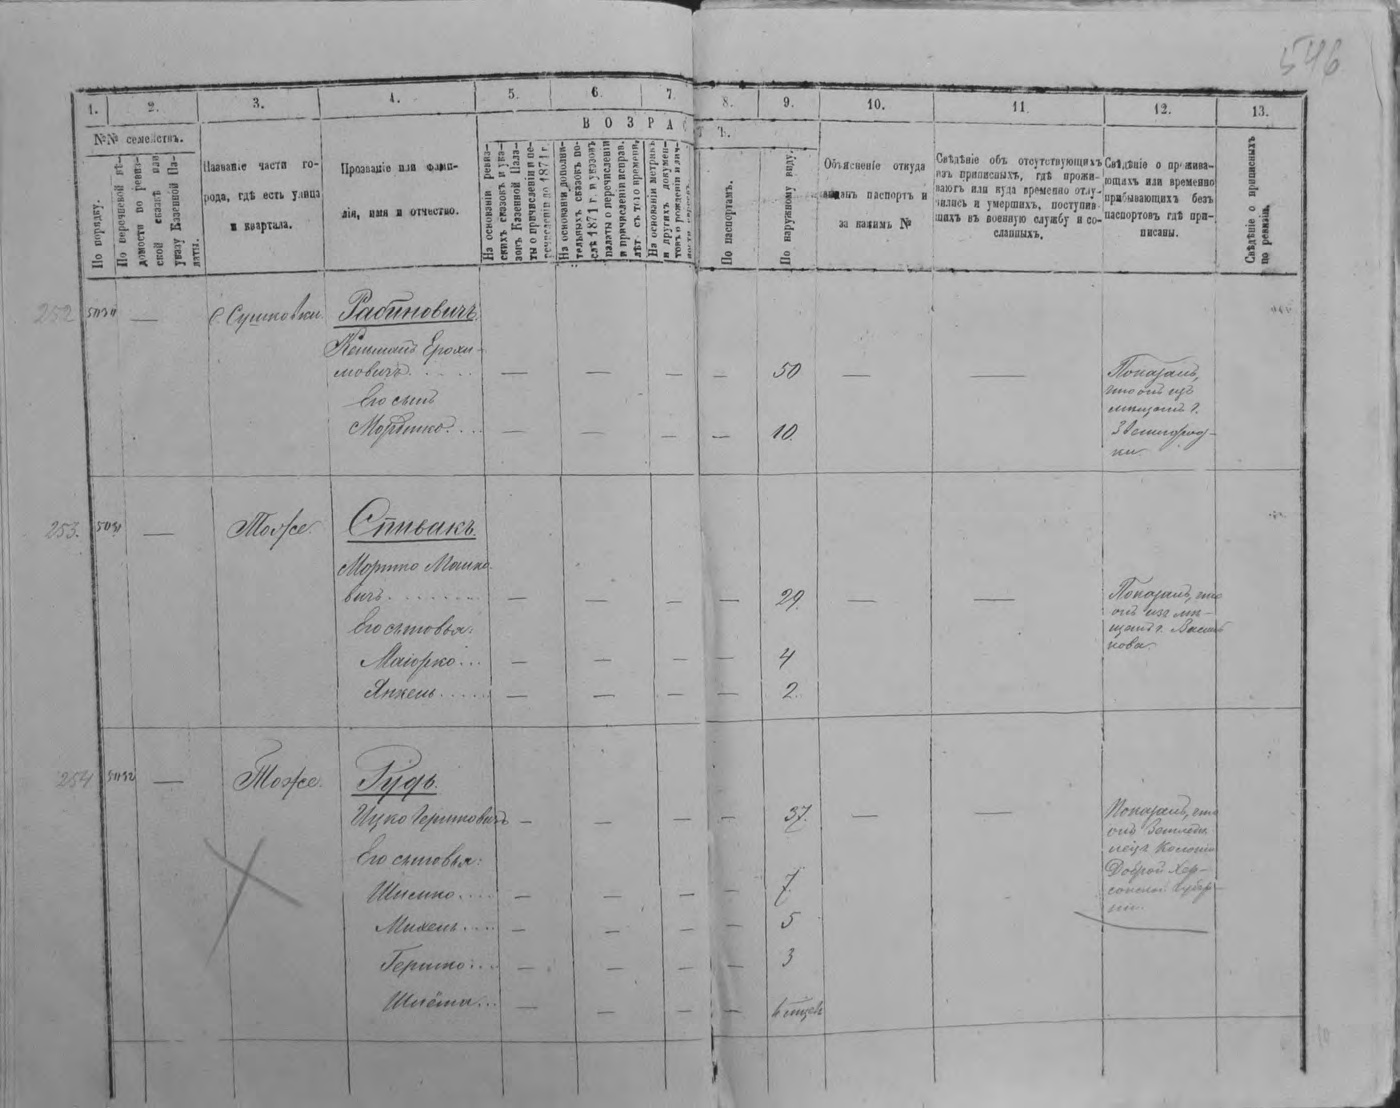 546
1. 2. 3. 4. 5. 6. 7. 8. 9. 10. 11. 12. 13.
№№ семействъ.
По порядку.
По перечневой вѣ-
домости по ревиз-
ской сказкѣ или
указу Казенной Па-
латы.
Названіе части го-
рода, гдѣ есть улица
и квартала.
Прозваніе или фами-
лія, имя и отчество.
ВОЗРАСТЪ.
На основаніи ревиз-
скихъ сказокъ и ука-
зовъ Казенной Пала-
ты о причисленіи и пе-
речисленіи до 1871 г.
На основаніи дополни-
тельныхъ сказокъ по-
слѣ 1871 г. и указовъ
палаты о перечисленіи
и причисленіи исправ.
лѣт. съ того времени.
На основаніи метрикъ
и другихъ докумен-
товъ о рожденіи и лич-
По паспортамъ.
По наружному виду.
Объясненіе откуда
выданъ паспортъ и
за какимъ №
Свѣдѣніе объ отсутствующихъ
изъ приписныхъ, гдѣ прожи-
ваютъ или куда временно отлу-
чились и умершихъ, поступив-
шихъ въ военную службу и со-
сланныхъ.
Свѣдѣніе о прожива-
ющихъ или временно
прибывающихъ безъ
паспортовъ гдѣ при-
писаны.
Свѣдѣніе о приписныхъ
по ревизіи.
252 — с. Сушковки Рабиновичъ.
Кельманъ Ерохи-
мовичъ. — — — — 50 — — Показалъ,
что онъ изъ
мѣщанъ г.
Звенигород-
ки.
Его сынъ
Мордко. — — — — 10.
253. — Тоже. Спивакъ.
Мошко-
вичъ — — — — 29. — — Показалъ, что
онъ изъ мѣ-
щанъ г.
кова.
Его сыновья:
Маіорко — — — — 4
Янкель — — — — 2.
254 — Тоже. Рудь.
Ицко Гершковичъ — — — — 37. — — Показалъ, что
онъ Земледѣ-
лецъ Колоніи
Доброй Хер-
сонской Губер-
ніи.
Его сыновья:
Шимко — — — — 7
Михель — — — — 5
Гершко — — — — 3
Шлёма — — — —